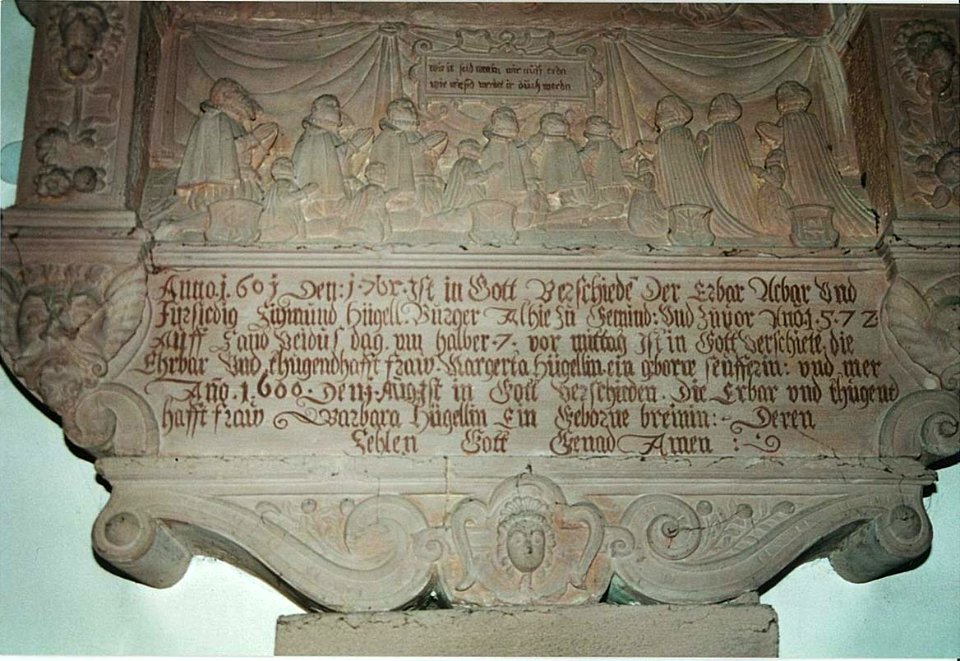 wie ir seid waren wir auff erden
wie wir seid werdet ir auch werden
Anno 1601 Den: 1 7br Ist in Gott Verschiede Der Erbar Acbar Vnd
Fursicdig Sigmund Hügell: Burger Alhie zu Gemünd: Vnd zuvor Ano 1.5.72
Auff S and Veidus dag. vm halber 7. vor mittag Ist in Gott Verschiete, die
Ehrbar Vnd thugendhafft fraw. Margreta Hügellin ein geborne seufferin: vnd mer
Ano. 1.600. Den 1 Augst in Gott Verschieden. Die Erbar vnd thugent
hafft fraw Barbara Hügellin Ein Geborne breinin: Deren
Sehlen Gott Genad Amen :